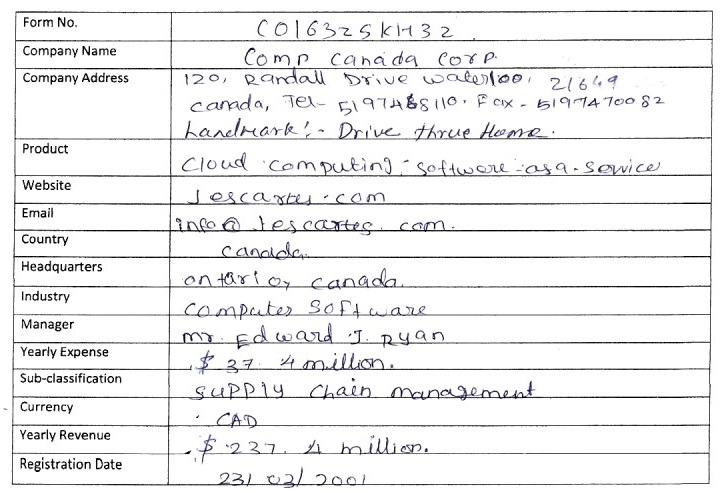 Form No. CO16325KH32
Company Name Comp Canada Corp.
Company Address 120, Randall Drive Waterloo, 21649
Canada, Tel- 5197468110. Fax - 5197470082
Landmark:- Drive thrue Home.
Product Cloud computing - software-as a-service
Website Jescartes.com
Email info@Jescartes.com.
Country Canada.
Headquarters ontario, canada.
Industry computer software
Manager mr. Edward J. Ryan
Yearly Expense $ 37.4 million.
Sub-classification supply chain management
Currency CAD
Yearly Revenue $ 237.4 million.
Registration Date 23/03/2001